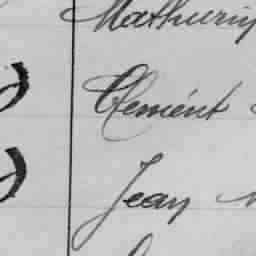 Mathurin
Clemént
Jean